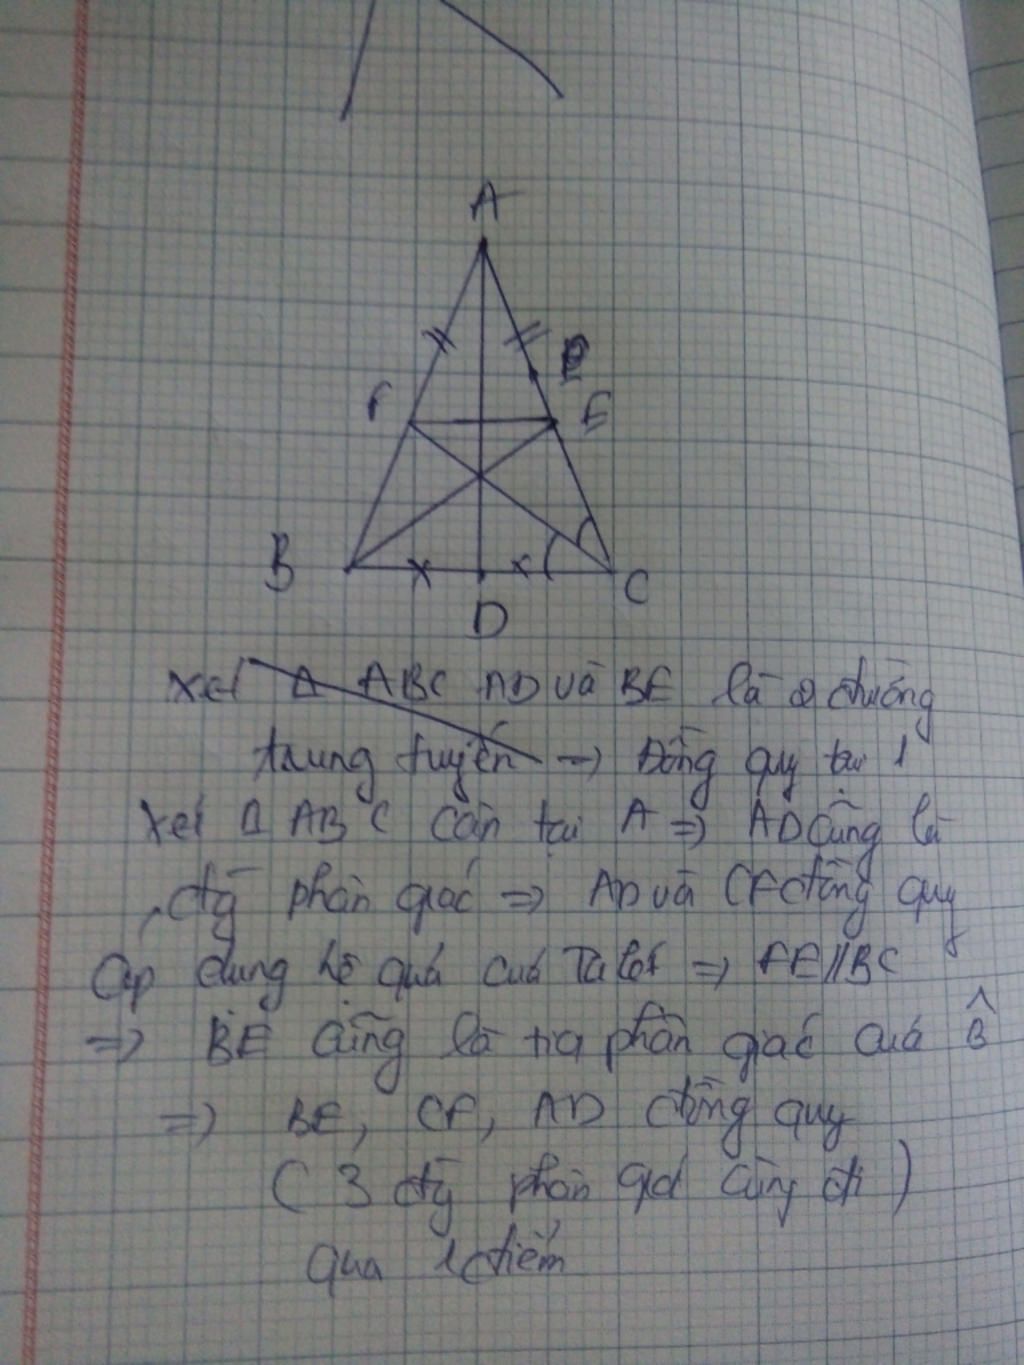 A
F
E
B
D
C
Xét Δ ABC AD và BE là 2 đường
trung tuyến => Đồng quy tại 1
Xét Δ ABC cân tại A => AD cũng là
đg phân giác => AD và CF đồng quy
Áp dụng hệ quả của Talet => FE//BC
=> BE cũng là tia phân giác của B̂
=> BE, CF, AD đồng quy
( 3 đg phân giác cùng đi )
qua 1 điểm